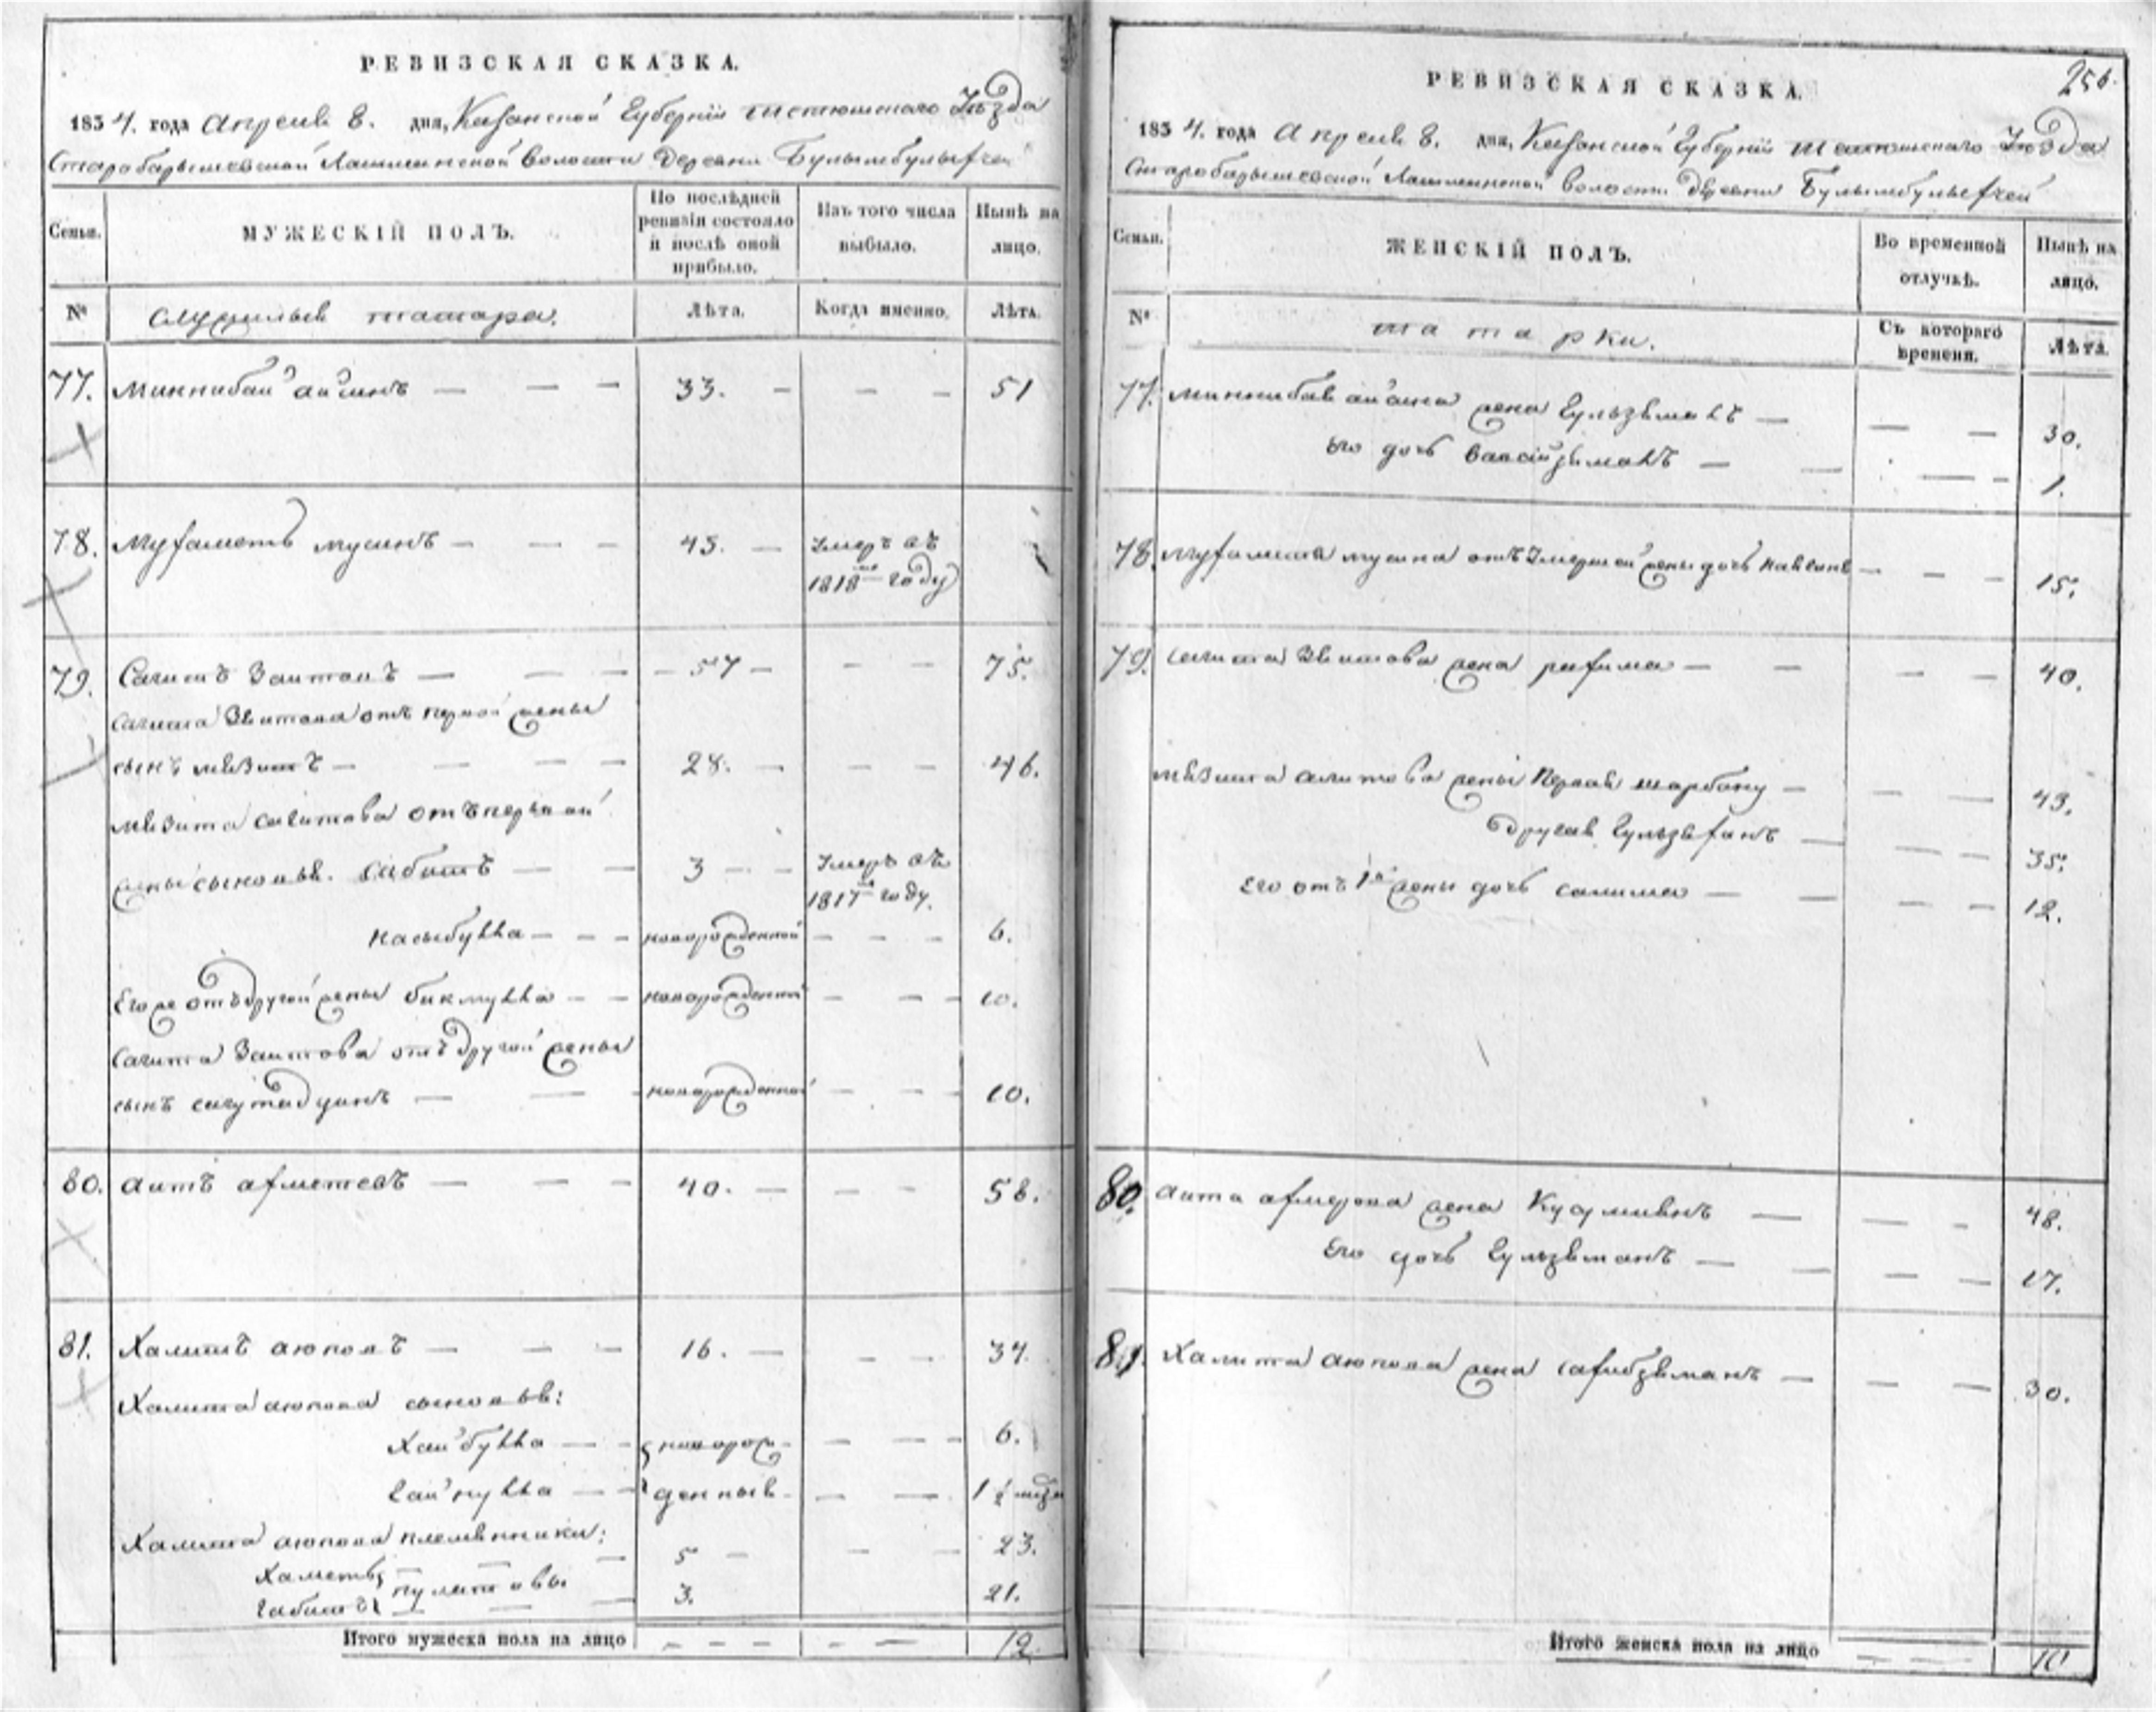 РЕВИЗСКАЯ СКАЗКА.
1834. года Апреля 8. дня, Казанской Губернiи тетюшскаго Уѣзда
Старобарышевской Волости Деревни
Семьи.
МУЖЕСКIЙ ПОЛЪ.
По послѣдней ревизiи состояло и послѣ оной прибыло.
Изъ того числа выбыло.
Нынѣ на лицо.
№
служилые татара.
Лѣта.
Когда именно.
Лѣта.
77. Миннибай — — — 33. — — — 51
78. Мухаметъ Мусинъ — — — 45. — Умеръ въ
1818 году
79. Сагитъ Заитовъ — — — 57 — — — 75.
Сагита Заитова отъ первой жены
сынъ мязитъ — — — — 28. — — — 46.
мязита сагитова отъ первой
жены сыновья. сабитъ — — 3 — — Умеръ въ
1817 году.
насыбулла — — — новорожденной — — — 6.
Егоже отъ другой жены бикмулла — — новорожденной — — — 10.
Сагита Заитова отъ другой жены
сынъ — — новорожденной — — 10.
80. Аитъ ахметевъ — — — 40. — — — 58.
81. Халитъ аюповъ — — — 16. — — — 34.
Халита аюпова сыновья:
Хайбулла — — новорож- — — — 6.
Гайнулла — — денныя — — — 1 ½
Халита аюпова племянники:
Хаметъ — 5 — — — 23.
Габитъ — — — 3. 21.
Итого мужеска пола на лицо — — — — — 12.
РЕВИЗСКАЯ СКАЗКА.
256.
1834. года Апреля 8. дня, Казанской Губернiи тетюшскаго Уѣзда
Старобарышевской волости деревни
Семьи.
ЖЕНСКIЙ ПОЛЪ.
Во временной отлучкѣ.
Нынѣ на лицо.
№
татарки.
Съ котораго времени.
Лѣта.
77. жена Гульзяманъ — — — 30.
Его дочь — — — — 1.
78. Мухамета мусина отъ Умершей жены дочь — — — 15.
79. Сагита Заитова жена рахима — — — — 40.
мязита сагитова жены Первая шарбану — — — 43.
другая — — — 35.
Его отъ 1й жены дочь салима — — — — 12.
80. Аита жена — — — 48.
Его дочь Гульзяманъ — — — — 17.
81. Халита аюпова жена — — — 30.
Итого женска пола на лицо — — — 10